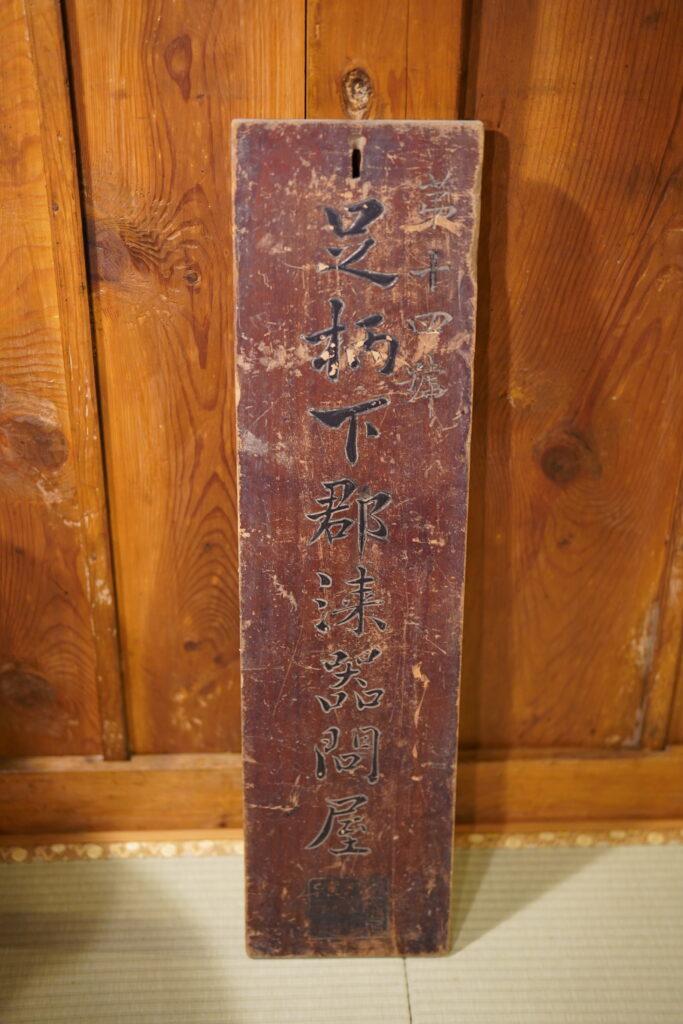 第十四號
足柄下郡漆器問屋